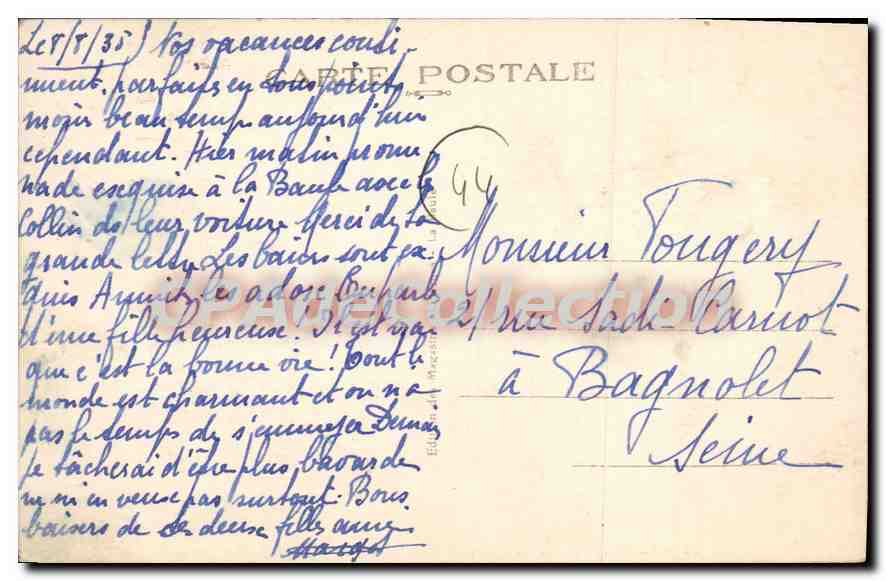 Le 8/8/35) Nos vacances conti-
nuent, parfaites en tous points
moins beau temps aujourd'hui
cependant. Hier matin prome-
nade exquise à la Baule avec les
Collin ds leur voiture Merci de ta
grande lettre Les bains sont ex-
quis Annick les adore En parler
d'une fille heureuse! Il est vrai
que c'est la bonne vie! Tout le
monde est charmant et on n'a
pas le temps de s'ennuyer Demain
je tâcherai d'être plus bavarde
ne m'en veux pas surtout. Bons
baisers de ces deux filles
Margot
CARTE POSTALE
44
Monsieur Fougery
21 rue Sadi-Carnot
à Bagnolet
Seine
Edition des Magasins La Baule
CPA de Collection